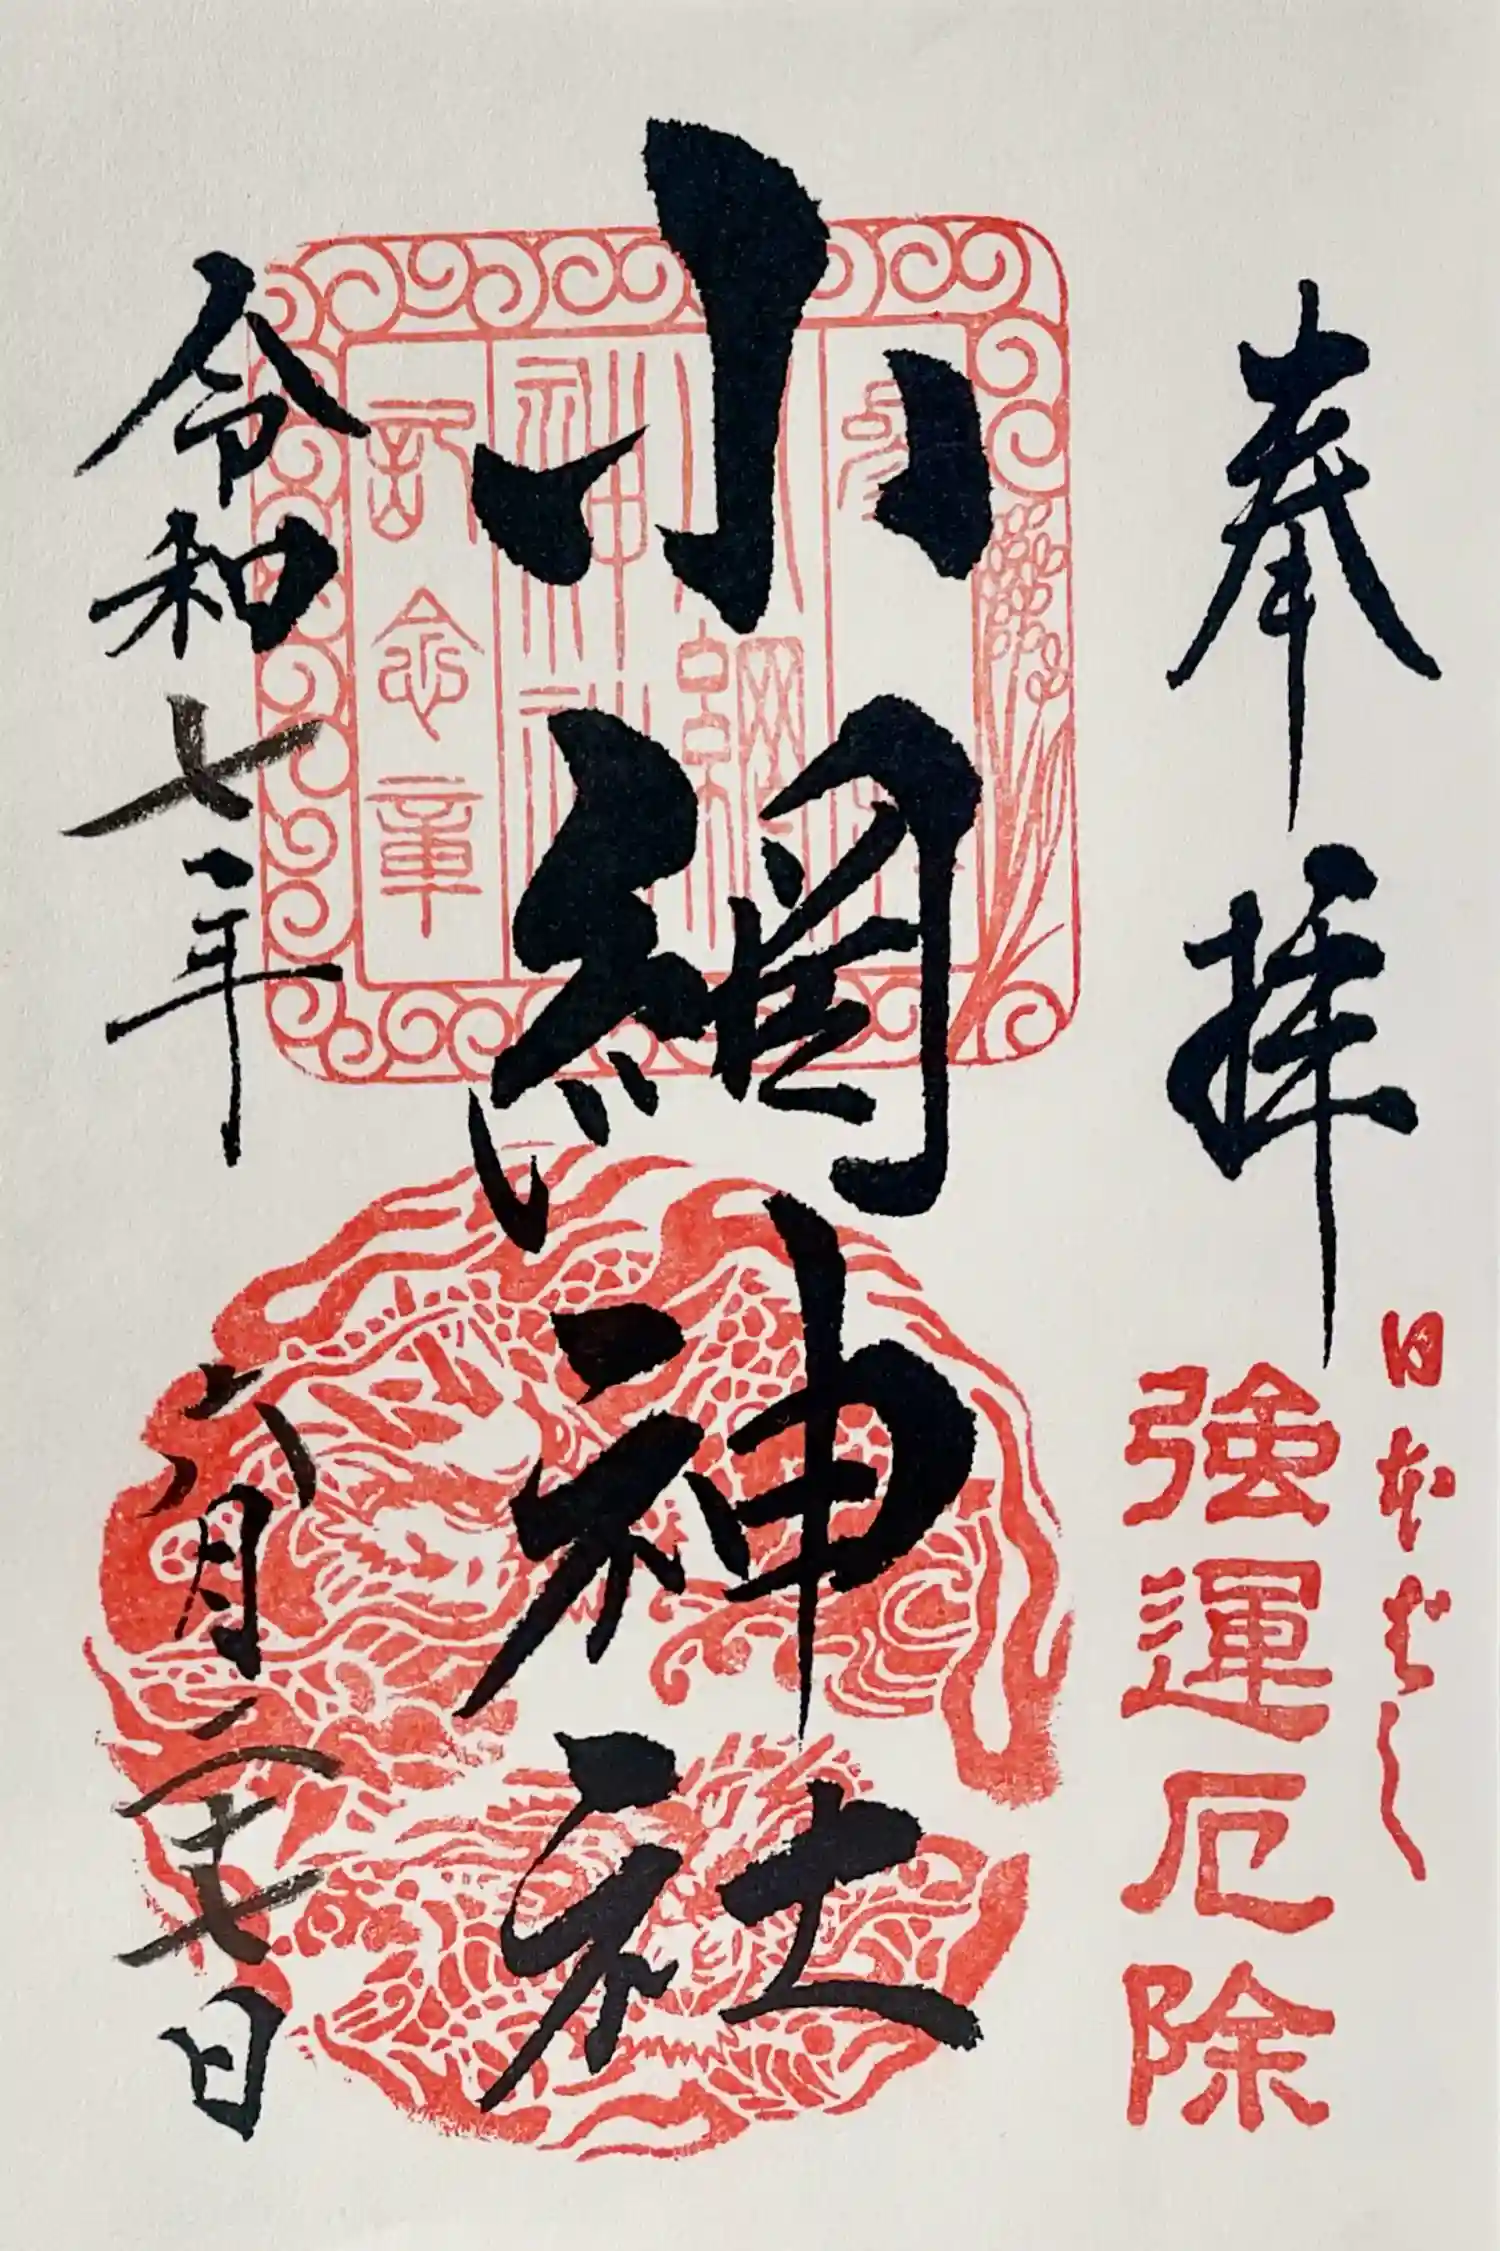 奉拝
日本ばし
強運厄除
小網神社
小網
神社
記念章
令和七年
六月二十七日